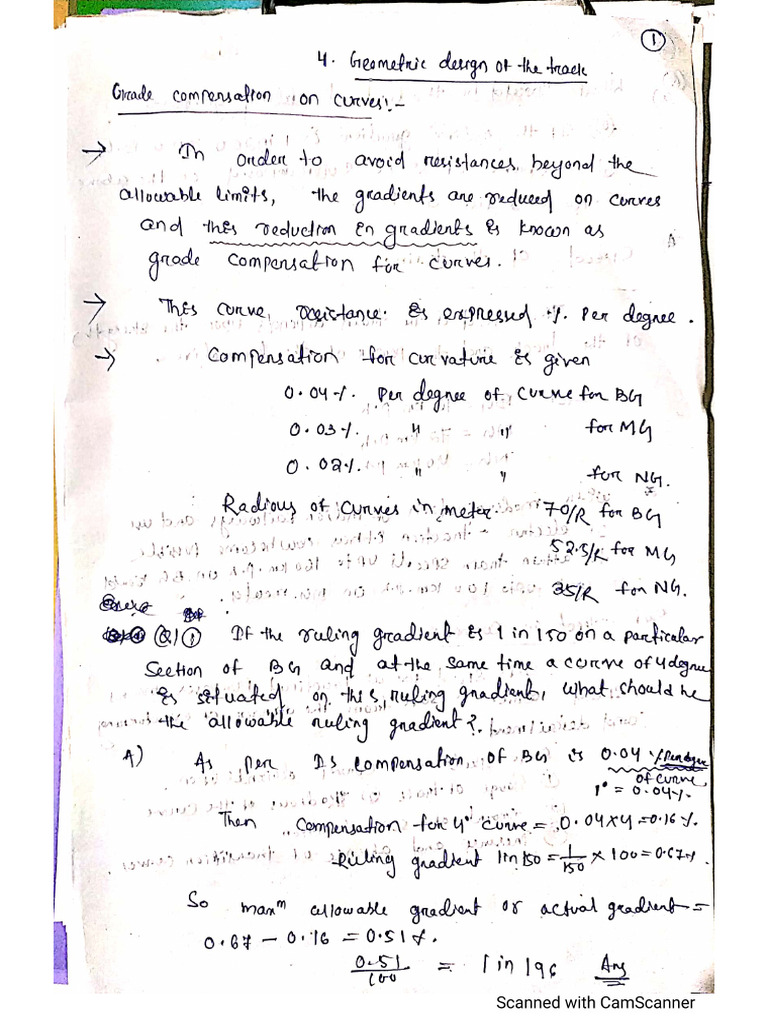 1
4. Geometric design of the track
Grade compensation on curves:-
→ In order to avoid resistances beyond the
allowable limits, the gradients are reduced on curves
and this reduction in gradients is known as
grade compensation for curves.
→ This curve resistance is expressed %. Per degree.
→ Compensation for curvature is given
0.04%. Per degree of curve for BG
0.03%. " " for MG
0.02%. " " for NG.
Radious of curves in meter. 70/R for BG
52.5/R for MG
35/R for NG.
Q1 If the ruling gradient is 1 in 150 on a particular
section of BG and at the same time a curve of 4 degree
is situated on this ruling gradient, what should be
the allowable ruling gradient?
A) As per IS compensation of BG is 0.04 % per degree
of curve
1° = 0.04%.
Then compensation for 4° curve = 0.04 x 4 = 0.16 %.
Ruling gradient 1 in 150 = 1/150 x 100 = 0.67%.
So maxm allowable gradient or actual gradient =
0.67 - 0.16 = 0.51%.
0.51/100 = 1 in 196 Ans
Scanned with CamScanner